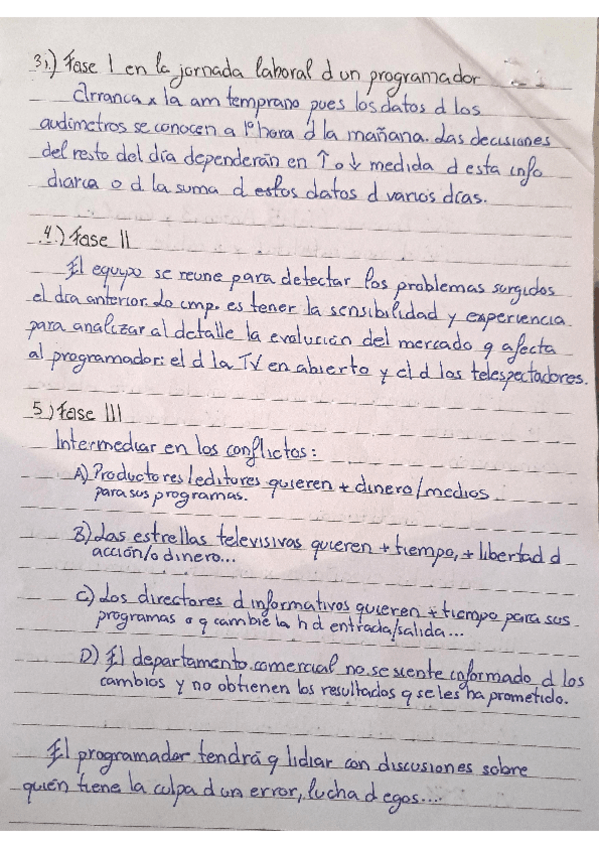 3.) Fase I en la jornada laboral d un programador
Arranca x la am temprano pues los datos d los
audímetros se conocen a 1º hora d la mañana. Las decisiones
del resto del día dependerán en ↑ o ↓ medida d esta info
diaria o d la suma d estos datos d varios días.
4.) Fase II
El equipo se reune para detectar los problemas surgidos
el día anterior. Lo imp. es tener la sensibilidad y experiencia
para analizar al detalle la evolución del mercado q afecta
al programador: el d la TV en abierto y el d los telespectadores.
5) Fase III
Intermediar en los conflictos:
A) Productores/editores quieren + dinero/medios
para sus programas.
B) Las estrellas televisivas quieren + tiempo, + libertad d
acción/o dinero...
C) Los directores d informativos quieren + tiempo para sus
programas o q cambie la h d entrada/salida...
D) El departamento comercial no se siente informado d los
cambios y no obtienen los resultados q se les ha prometido.
El programador tendrá q lidiar con discusiones sobre
quién tiene la culpa d un error, lucha d egos....